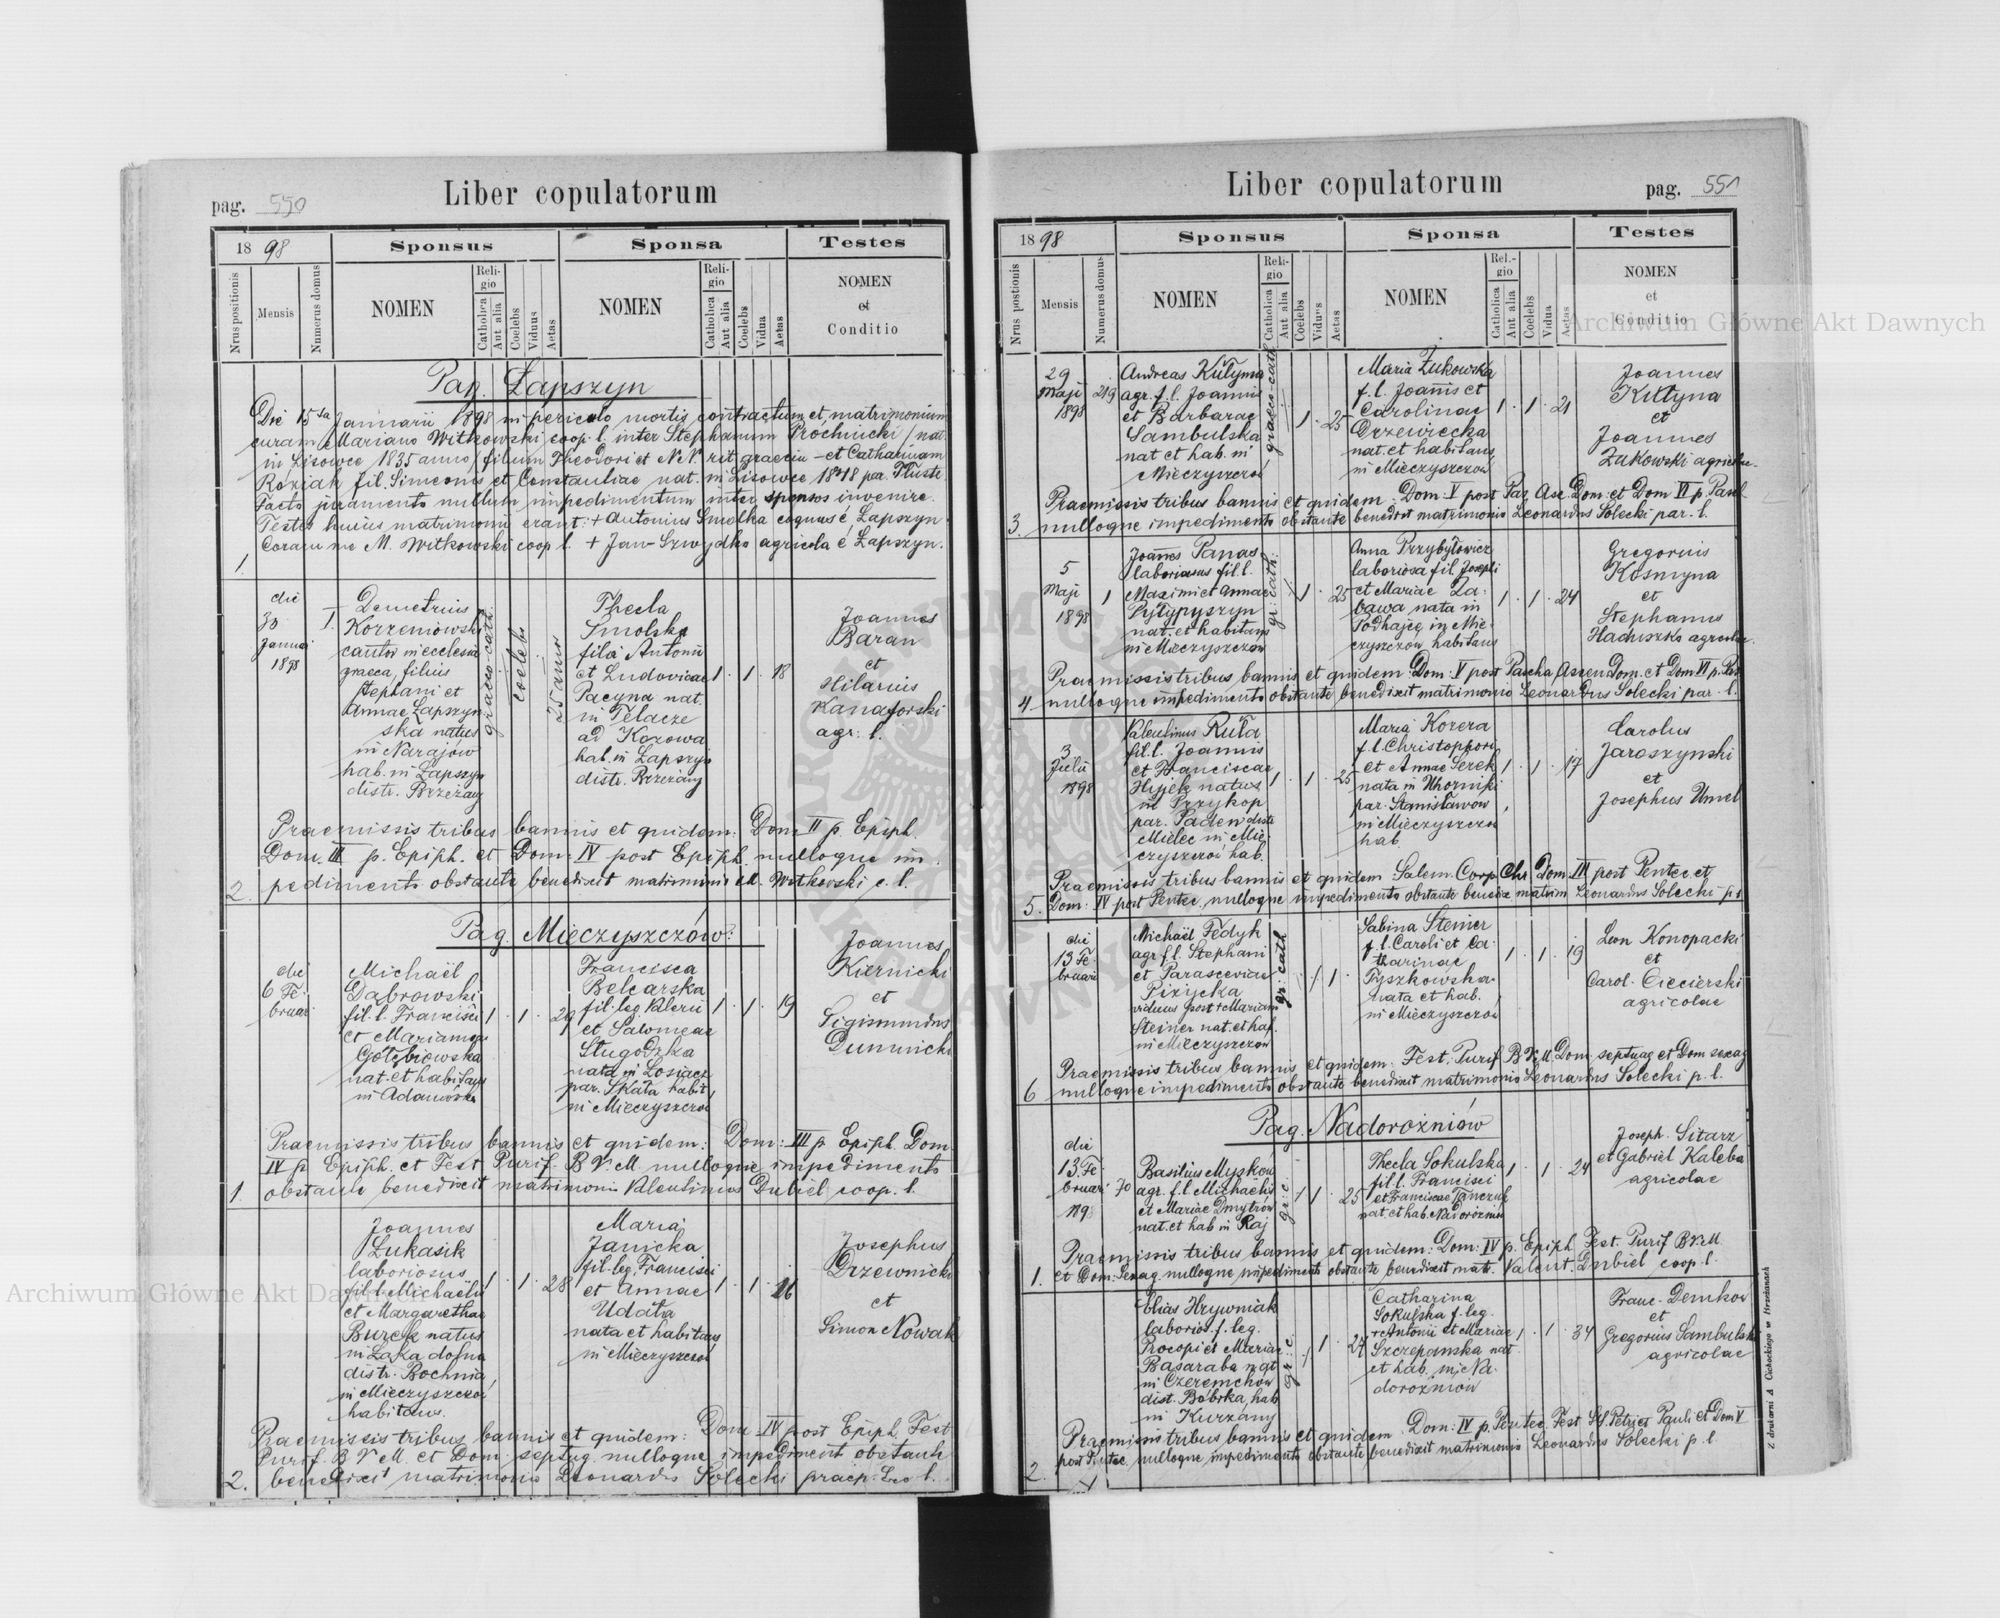 pag. 550
Liber copulatorum
1898
Sponsus
Sponsa
Testes
Nrus positionis
Mensis
Numerus domus
NOMEN
Religio
Catholica
Aut alia
Coelebs
Viduus
Aetas
NOMEN
Religio
Catholica
Aut alia
Coelebs
Vidua
Aetas
NOMEN
et
Conditio
Pag. Łapszyn
Die 15ta Januarii 1898 in periculo mortis contractum et matrimonium
curam Mariano Witkowski coop. l. inter Stephanum Próchnicki / nat.
in Lisowce 1835 anno / filium Theodori et N.N. rit graeciu – et Catharinam
Koziak fil. Simeonis et Constantiae nat. in Lisowce 1848 par. Tłuste
Facto juramento nullum impedimentum inter sponsos invenire.
Testes huius matrimonii erant: + Antonius Smolka é Łapszyn
Coram me M. Witkowski coop l. + Jan Szwydko agricola é Łapszyn.
1.
die
30
Januar
1898
I.
Demetrius
Korzeniowski
cantor in ecclesia
graeca, filius
Stephani et
Annae Łapszyn-
ska natus
in Narajów
hab. in Łapszyn
distr. Brzeżany
graeco-cath.
coelebs
25 annor
Thecla
Smolska
filia Antonii
et Ludovicae
Pacyna nat.
in Telacze
ad Kozowa
hab. in Łapszyn
distr. Brzeżany
1 . 1 . 18
Joannes
Baran
et
Hilarius
Kanaforski
agr: l.
Praemissis tribus bannis et quidem: Dom II p. Epiph.
Dom. III p. Epiph. et Dom: IV post Epiph. nulloque im
2. pedimento obstante benedixit matrimonio M. Witkowski c. l.
Pag. Mieczyszczów:
die
6 Fe-
bruar
Michaël
Dąbrowski
fil. l. Francisci
et Mariannae
Gołębiowska
nat. et habitans
in Adamówka
1 . 1 . 29
Francisca
Belcarska
fil. leg. Valerii
et Salomeae
Sługodzka
nata in Losiacz
par. Skała habit.
in Mieczyszczów
1 . 1 . 19
Joannes
Kiernicki
et
Sigismundus
Dumnicki
Praemissis tribus bannis et quidem: Dom: III p Epiph. Dom.
IV p. Epiph. et Fest Purif. B V. M. nulloque impedimento
1. obstante benedixit matrimonio Valentinus Dubiel coop. l.
Joannes
Łukasik
laboriosus
fil. l. Michaëlis
et Margarethae
Burek natus
in Łąka dolna
distr. Bochnia,
in Mieczyszczów
habitans.
1 . 1 . 28
Maria
Janicka
fil. leg. Francisci
et Annae
Udała
nata et habitans
in Mieczyszczów
1 . 1 . 26
Josephus
Drzewnicki
et
Simon Nowak
Praemissis tribus bannis et quidem: Dom IV post Epiph. Fest
Purif. B V M. et Dom septug. nulloque impediment obstante
2. benedixit matrimonio Leonardus Solecki praep. l.
pag. 551
Liber copulatorum
1898
Sponsus
Sponsa
Testes
Nrus postionis
Mensis
Numerus domus
NOMEN
Religio
Catholica
Aut alia
Coelebs
Viduus
Aetas
NOMEN
Rel.-gio
Catholica
Aut alia
Coelebs
Vidua
Aetas
NOMEN
et
Conditio
29
Maji
1898
219
Andreas Kiłtyna
agr. f. l. Joannis
et Barbarae
Sambulska
nat et hab. in
Mieczyszczów
graeco-cath
1 . 25
Maria Żukowska
f. l. Joannis et
Carolinae
Drzewiecka
nat. et habitans
in Mieczyszczów
1 . 1 . 21
Joannes
Kiłtyna
et
Joannes
Żukowski agricolae.
Praemissis tribus bannis et quidem: Dom. V post Pas. Asc. Dom: et Dom VI p. Pasch
3. nulloque impedimento obstante benedixit matrimonio Leonardus Solecki par. l.
5
Maji
1898
1
Joannes Panas
laboriosus fil. l.
Maximi et Annae
Pyłypyszyn
nat. et habitans
in Mieczyszczów
gr: cath:
1 . 25
Anna Przybyłowicz
laboriosa fil. Josephi
et Mariae Za-
bawa nata in
Podhajce in Mie-
czyszczów habitans
1 . 1 . 24
Gregorius
Kosmyna
et
Stephanus
Haduszko agricolae.
Praemissis tribus bannis et quidem: Dom: V post Pascha, Ascen Dom. et Dom VI p. Pas
4. nulloque impedimento obstante benedixit matrimonio Leonardus Solecki par. l.
3
Julii
1898
Valentinus Ruta
fil. l. Joannis
et Franciscae
Hyjek natus
in Przykop
par. Padew distr
Mielec in Mie-
czyszczów hab.
1 . 1 . 25
Maria Kozera
f. l. Christophori
et Annae Serek
nata in Uhorniki
par. Stanisławów
in Mieczyszczów
hab
1 . 1 . 17
Carolus
Jaroszynski
et
Josephus Umel
Praemissis tribus bannis et quidem Solem. Corp Chr. Dom: III post Pentec et
5. Dom: IV post Pentec. nulloque impedimento obstante benedix matrim Leonardus Solecki p. l.
die
13 Fe-
bruari
Michaël Fedyk
agr f. l. Stephani
et Parasceviae
Pizycka
viduus post + Mariam
Steiner nat. et hab.
in Mieczyszczów
gr: cath
1
Sabina Steiner
f. l. Caroli et Ca-
tharinae
Pyszkowska
nata et hab.
in Mieczyszczów
1 . 1 . 19
Leon Konopacki
et
Carol. Ciecierski
agricolae
Praemissis tribus bannis et quidem: Fest. Purif B V. M. Dom. septuag et Dom sexag
6 nulloque impedimento obstante benedixit matrimonio Leonardus Solecki p. l.
Pag. Nadorożniów
die
13 Fe-
bruari
189
70
Basilius Myskow
agr. f. l. Michaëlis
et Mariae Dmytrów
nat. et hab in Raj
gr: c
1 . 25
Thecla Sokulska
fil l. Francisci
et Franciscae Tanczuk
nat et hab. Nadorożniów
1 . 1 . 24
Joseph. Sitarz
et Gabriël Kaleba
agricolae
Praemissis tribus bannis et quidem: Dom: IV p. Epiph. Fest. Purif B V. M.
1. et Dom. Sexag. nulloque impedimento obstante benedixit mat. Valent. Dubiel coop. l.
Elias Hrywniak
laborios. f. leg.
Procopi et Mariae
Basaraba nat
in Czeremchów
dist. Bobrka, hab
in Kurzany
gr: c
1 . 27
Catharina
Sokulska f. leg.
+ Antonii et Mariae
Szczepanska nat.
et hab. in Na-
dorożniów
1 . 1 . 34
Franc. Demkow
et
Gregorius Sambulski
agricolae
Praemissis tribus bannis et quidem Dom: IV p. Pentec. Fest SS. Petri et Pauli et Dom V
2. post Pentec. nulloque impedimento obstante benedixit matrimonio Leonardus Solecki p. l.
Z drukarni A Cichockiego w Brzeżanach
Archiwum Główne Akt Dawnych
Archiwum Główne Akt Dawnych
ARCHIWUM GŁÓWNE AKT DAWNYCH